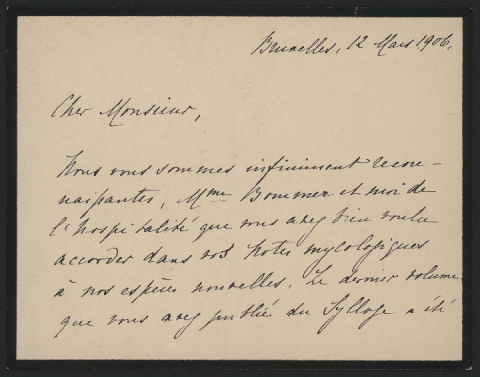 Bruxelles, 12 Mars 1906.
Cher Monsieur,
Nous vous sommes infiniment recon-
naissantes, Mme Bommer et moi de
l'hospitalité que vous avez bien voulu
accorder dans vos Notes mycologiques
à nos espèces nouvelles. Le dernier volume
que vous avez publié du Sylloge a été